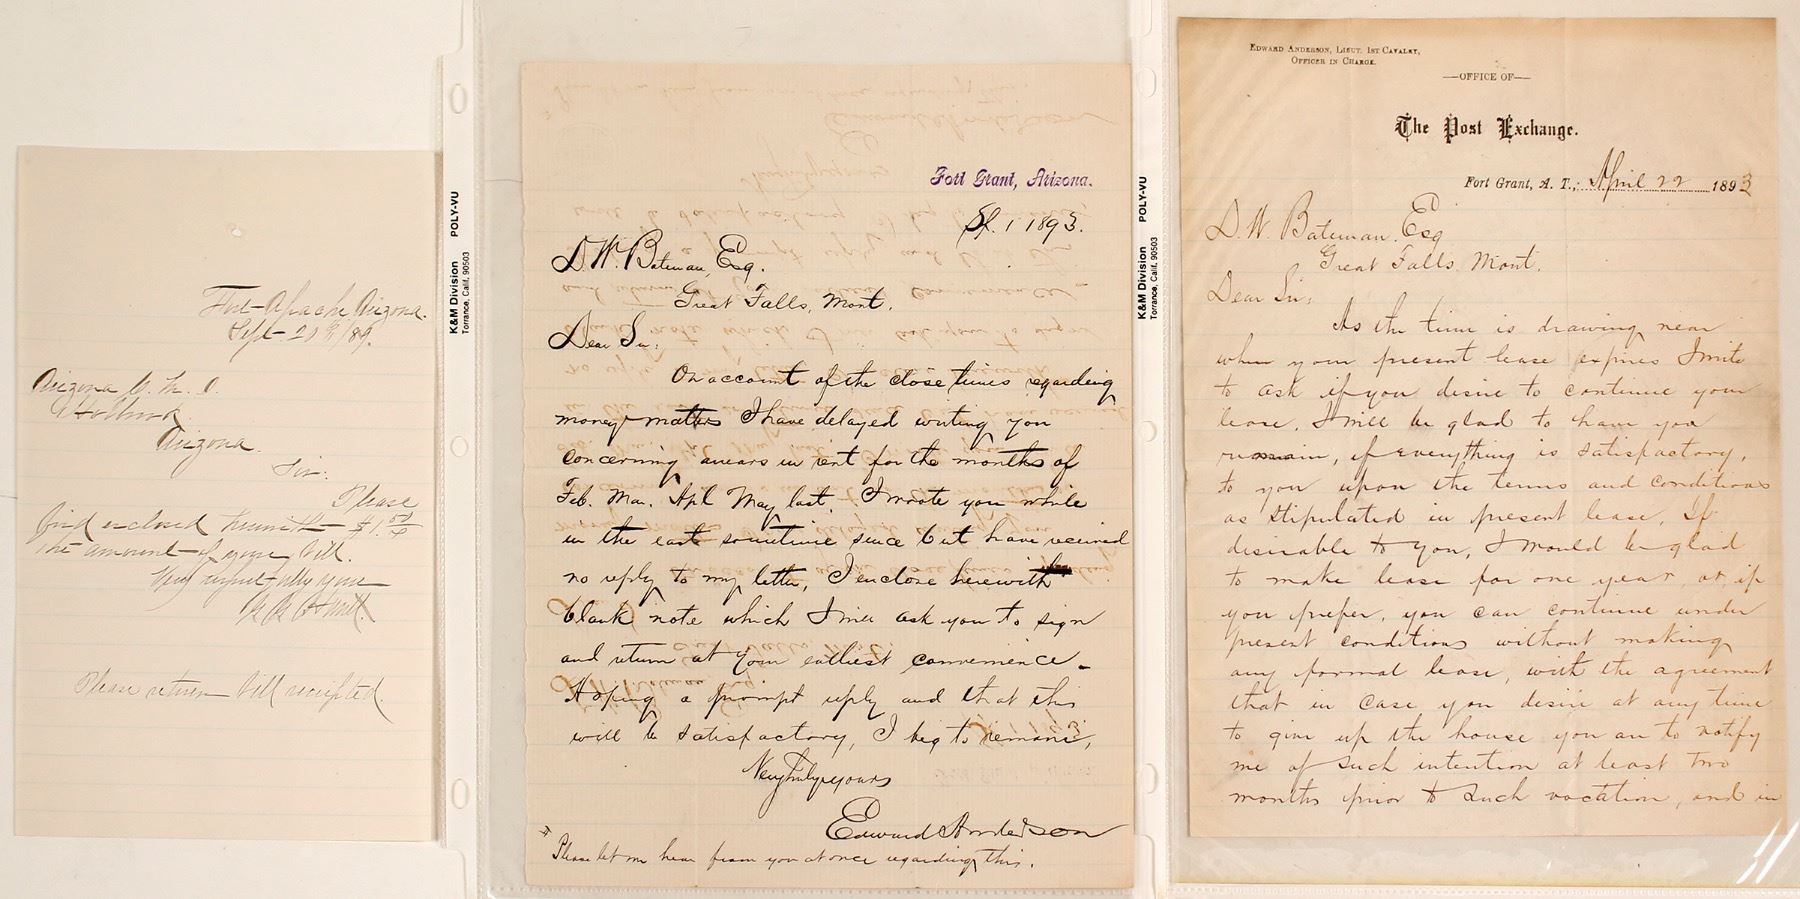 Fort Apache Arizona.
Sept 20th/89.
Arizona
Holbrook
Arizona.
Sir:
Please
find enclosed herewith $1.50
the amount of your bill.
Very respectfully yours
Please return bill receipted.
K&M Division POLY-VU
Torrance, Calif. 90503
Fort Grant, Arizona.
1 1893.
D. W. Bateman, Esq.
Great Falls, Mont.
Dear Sir:
On account of the close times regarding
money matters I have delayed writing you
concerning arrears in rent for the months of
Feb. Mar. Apl May last. I wrote you while
in the east sometime since but have received
no reply to my letter, I enclose herewith
blank note which I will ask you to sign
and return at your earliest convenience -
Hoping a prompt reply and that this
will be satisfactory, I beg to remain,
Very truly yours
Edward Anderson
Please let me hear from you at once regarding this.
K&M Division POLY-VU
Torrance, Calif. 90503
Edward Anderson, Lieut. 1st Cavalry,
Officer in Charge.
—OFFICE OF—
The Post Exchange.
Fort Grant, A. T., April 22 1893
D. W. Bateman, Esq
Great Falls, Mont.
Dear Sir:
As the time is drawing near
when your present lease expires I write
to ask if you desire to continue your
lease. I will be glad to have you
remain, if everything is satisfactory,
to you upon the terms and conditions
as stipulated in present lease. If
desirable to you, I would be glad
to make lease for one year, or, if
you prefer, you can continue under
present conditions without making
any formal lease, with the agreement
that in case you desire at any time
to give up the house you are to notify
me of such intention at least two
months prior to such vacation, and in